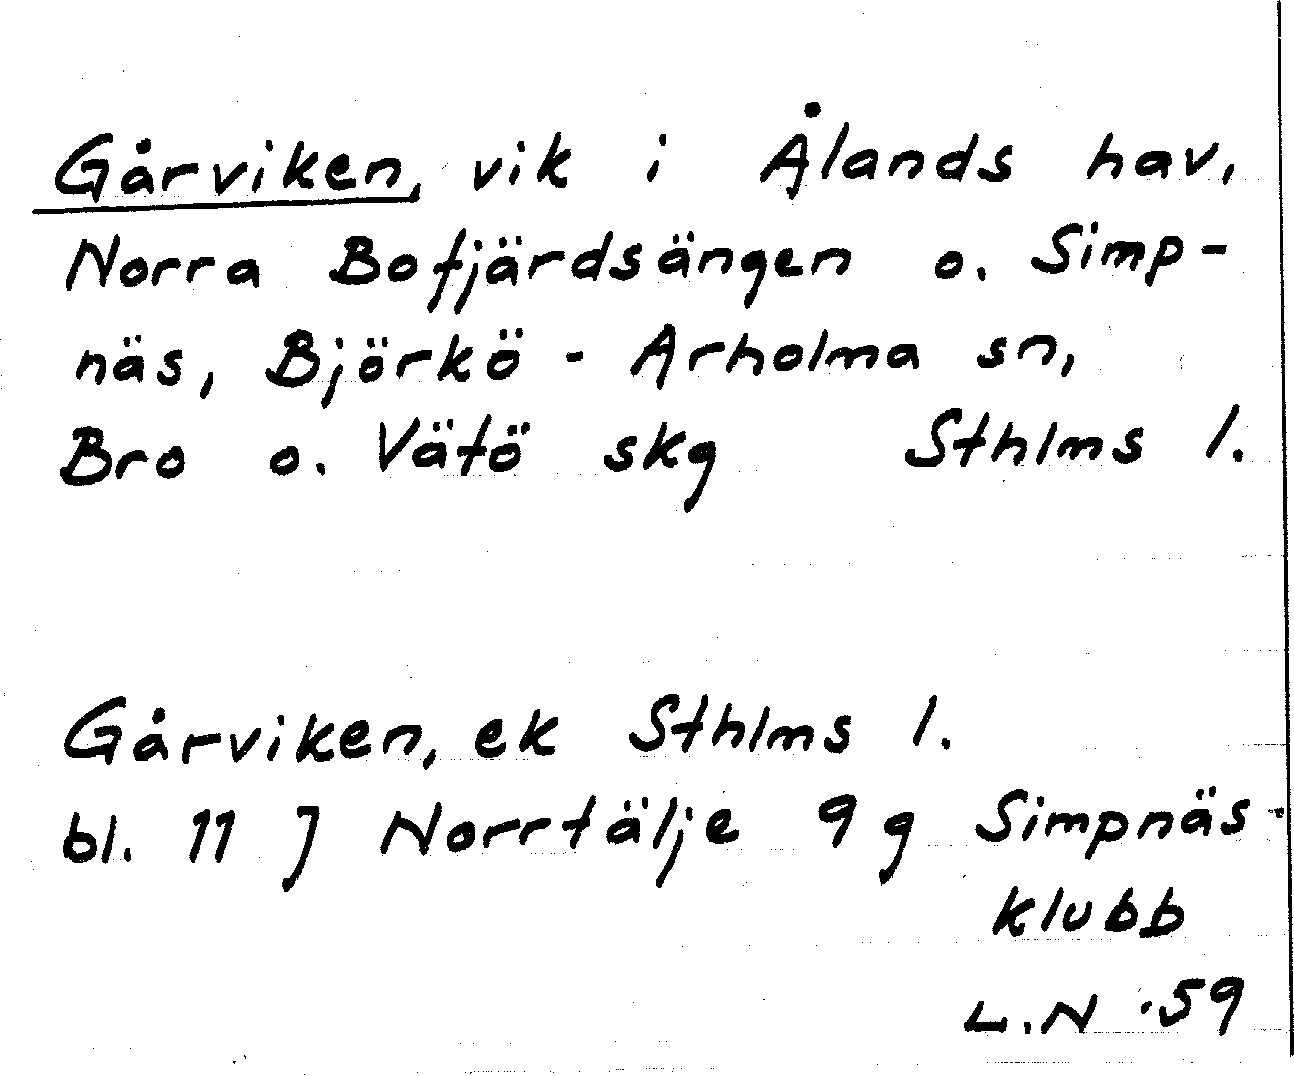 Gårviken, vik i Ålands hav,
Norra Bofjärdsängen o. Simp-
näs, Björkö - Arholma sn,
Bro o. Vätö skg Sthlms l.
Gårviken, ek Sthlms l.
bl. 11 J Norrtälje 9 g Simpnäs-
klubb
L.N. 59